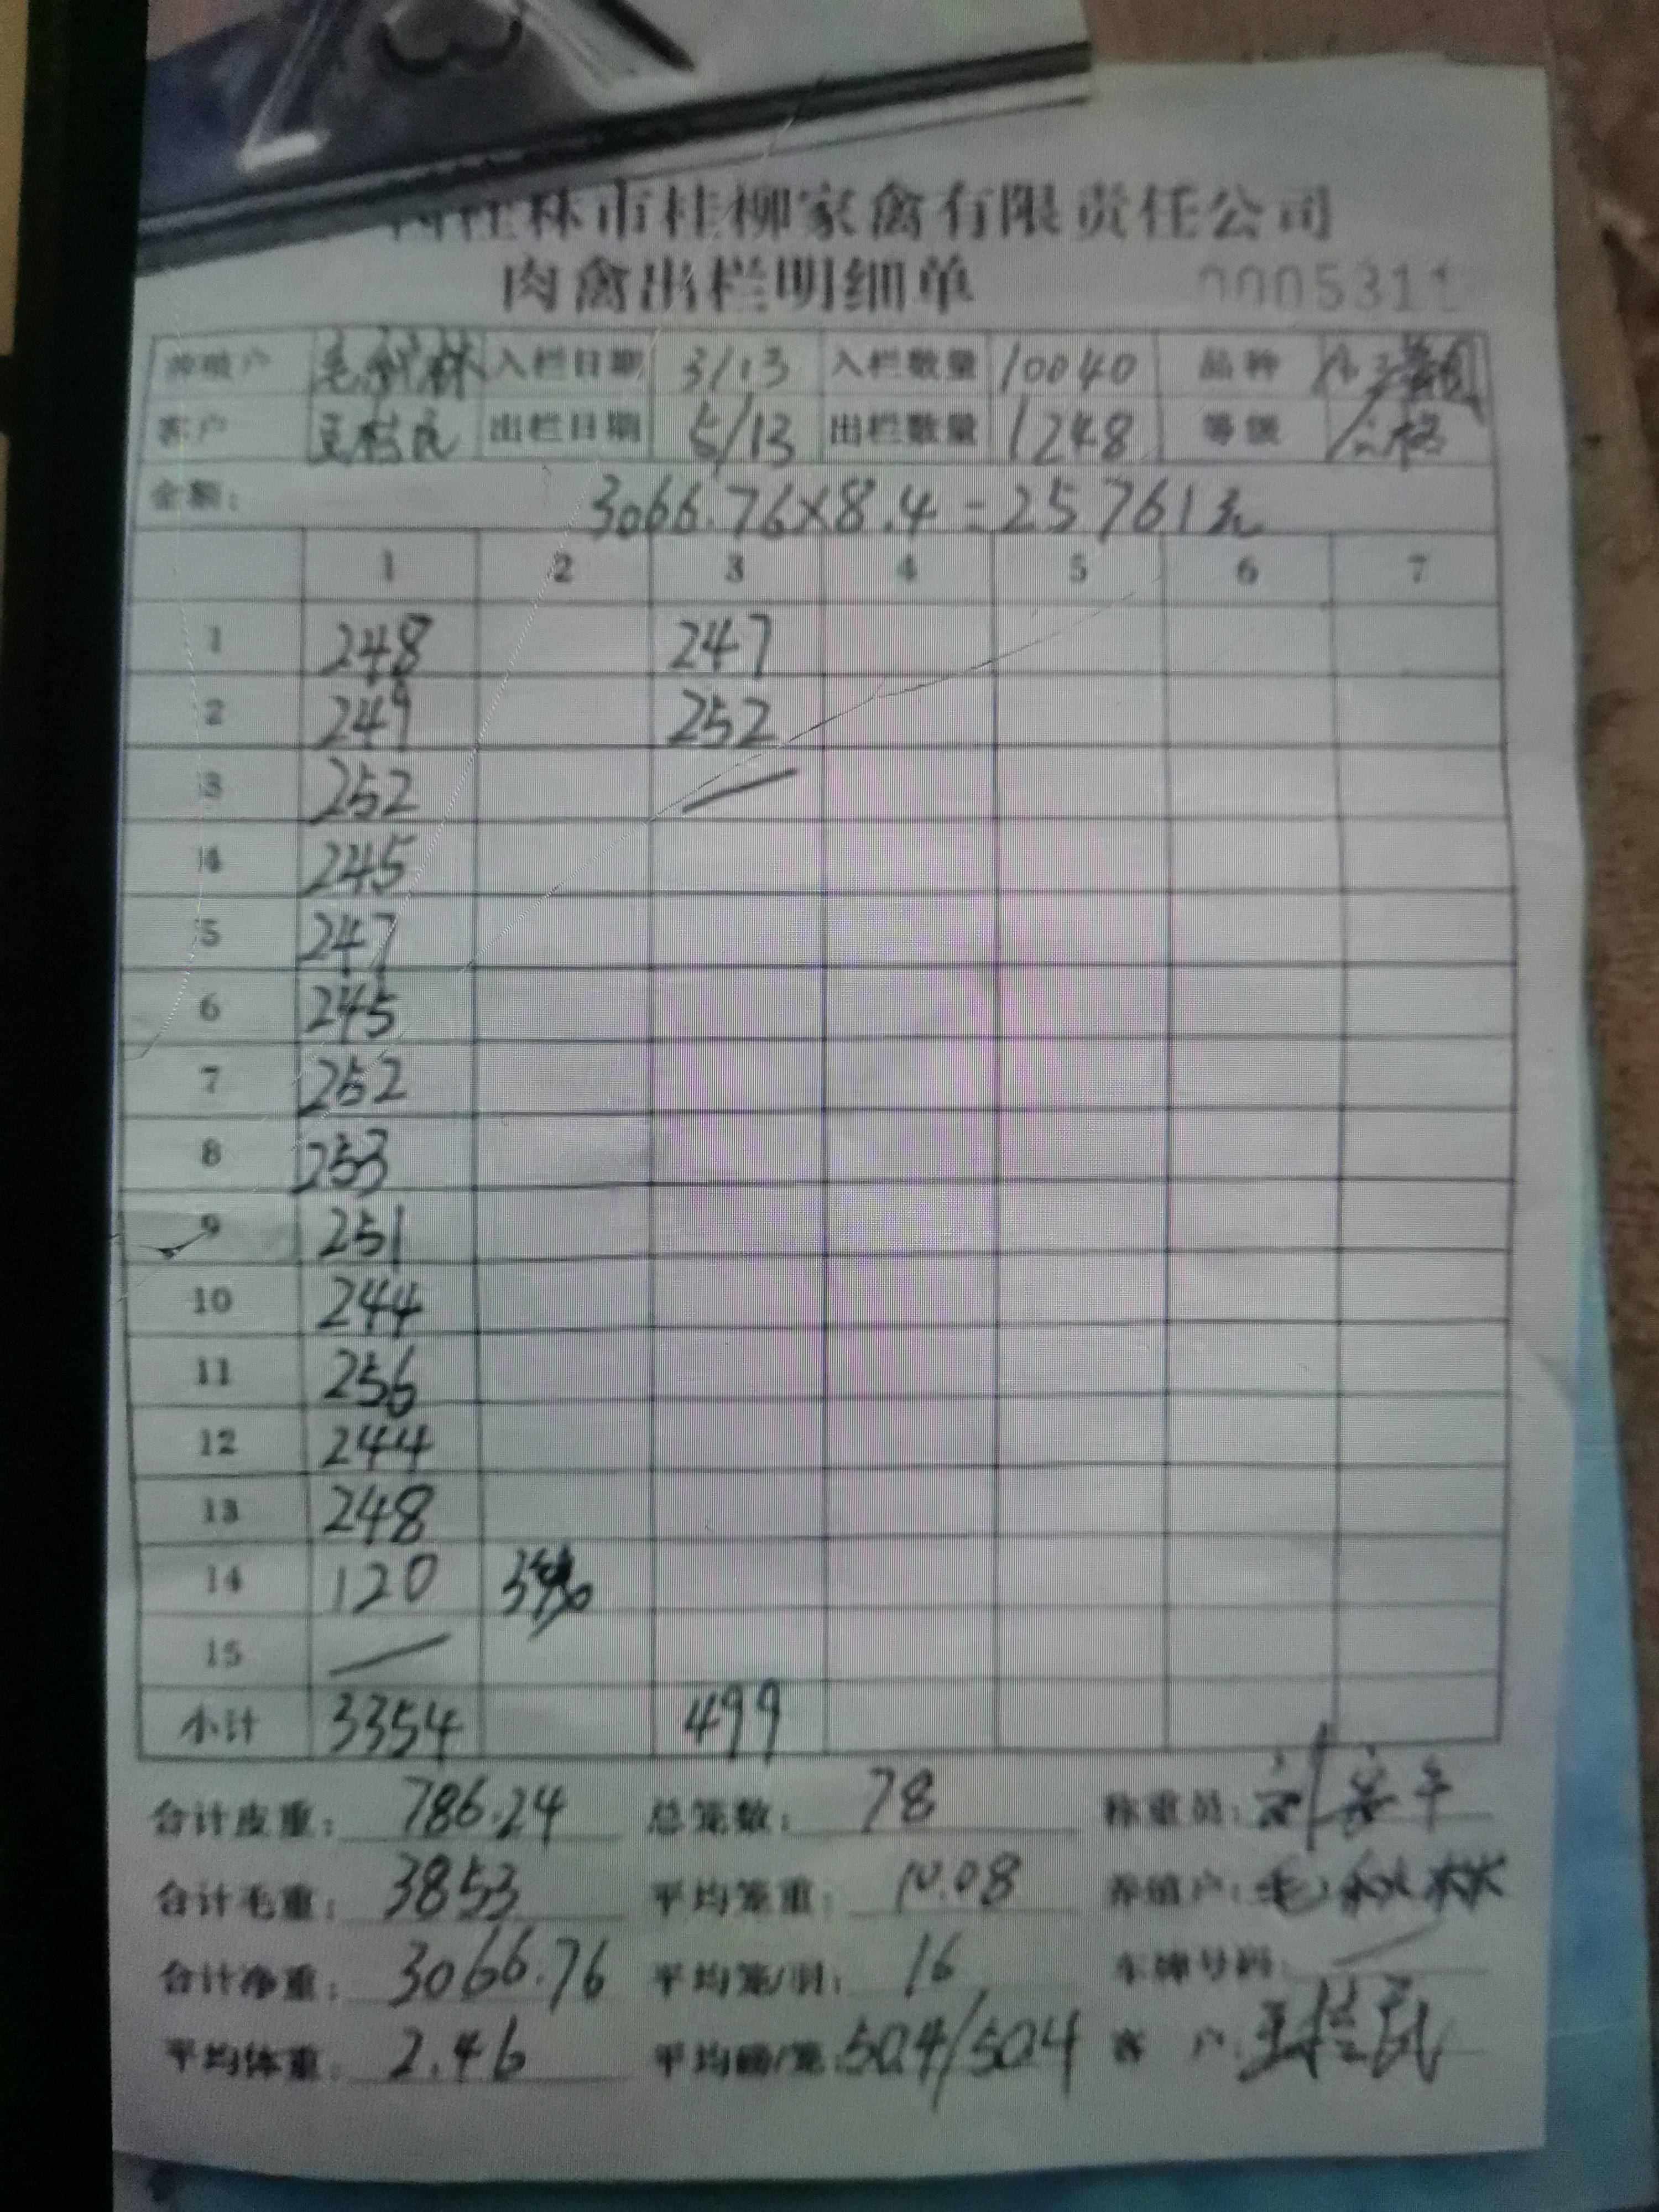 桂林市桂柳家禽有限责任公司
肉禽出栏明细单 0005311
养殖户 毛秋林 入栏日期 3/13 入栏数量 10040 品种
客户 出栏日期 5/13 出栏数量 1248 等级 合格
金额: 3066.76×8.4=25761元
1 2 3 4 5 6 7
1 248 247
2 249 252
3 252 —
4 245
5 247
6 245
7 252
8 253
9 251
10 244
11 256
12 244
13 248
14 120
15 —
小计 3354 499
合计皮重: 786.24 总笼数: 78 称重员:
合计毛重: 3853 平均笼重: 10.08 养殖户: 毛秋林
合计净重: 3066.76 平均笼/羽: 16 车牌号码: —
平均体重: 2.46 平均磅/笼: 504/504 客 户: